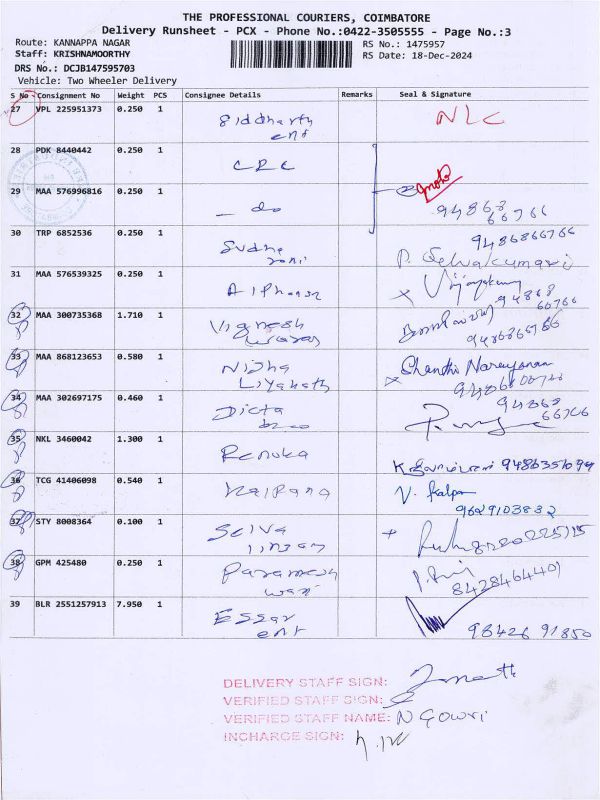 THE PROFESSIONAL COURIERS, COIMBATORE
Delivery Runsheet - PCX - Phone No.:0422-3505555 - Page No.:3
Route: KANNAPPA NAGAR RS No.: 1475957
Staff: KRISHNAMOORTHY RS Date: 18-Dec-2024
DRS No.: DCJB147595703
Vehicle: Two Wheeler Delivery
S No Consignment No Weight PCS Consignee Details Remarks Seal & Signature
27 VPL 225951373 0.250 1 Siddharth NLC
ent
28 PDK 8440442 0.250 1 CRC
29 MAA 576996816 0.250 1 - do
94868
66766
30 TRP 6852536 0.250 1 Sudha 9486866766
rani P. Selvakumari
31 MAA 576539325 0.250 1 Alphonsa
94868
60766
32 MAA 300735368 1.710 1 Vignesh
33 MAA 868123653 0.580 1 Nisha Chandra Narayanan
Liyakath
34 MAA 302697175 0.460 1 Dicta 94868
66766
35 NKL 3460042 1.300 1 Renuka
36 TCG 41406098 0.540 1 Kalpana V. Kalpa
9629103832
37 STY 8008364 0.100 1 Selva
lingam
38 GPM 425480 0.250 1 Paramesh
wari 8428464401
39 BLR 2551257913 7.950 1 Essar
ent 98426 91850
DELIVERY STAFF SIGN:
VERIFIED STAFF SIGN:
VERIFIED STAFF NAME: N Gowri
INCHARGE SIGN: